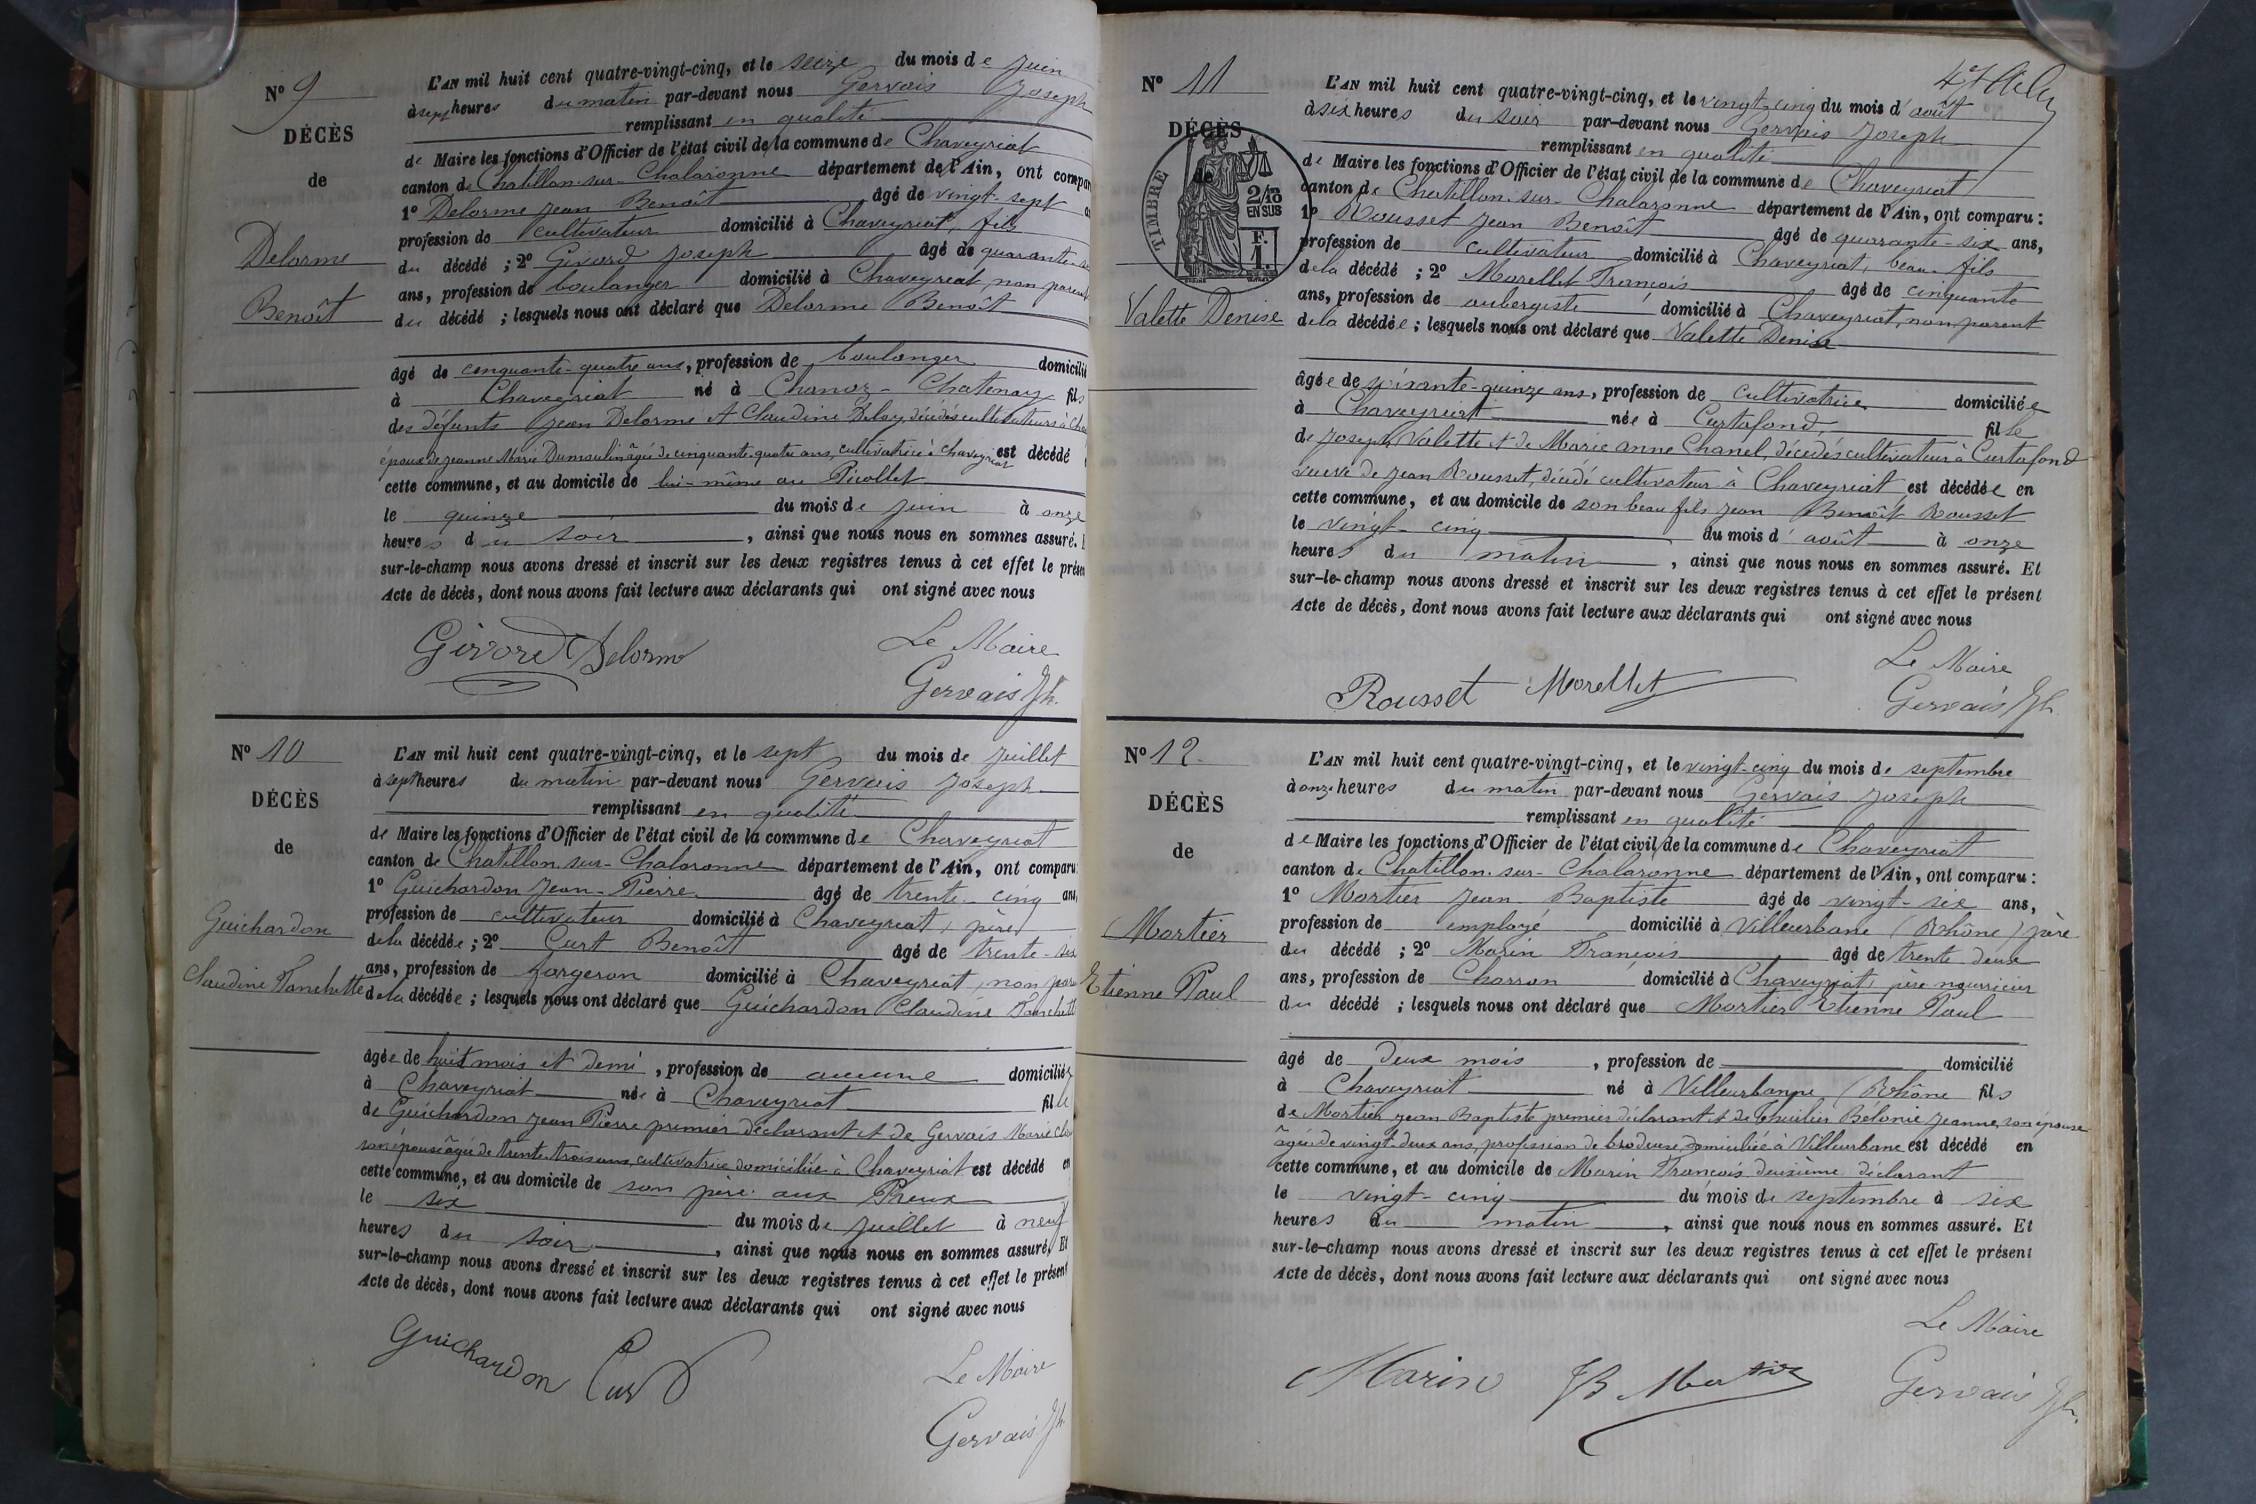 N° 9
DÉCÈS
de
Delorme
Benoît
L'AN mil huit cent quatre-vingt-cinq, et le seize du mois de juin
à sept heures du matin par-devant nous Gervais Joseph
remplissant en qualité
de Maire les fonctions d'Officier de l'état civil de la commune de Chaveyriat
canton de Chatillon-sur-Chalaronne département de l'Ain, ont compar
1° Delorme Jean Benoît âgé de vingt-sept
profession de cultivateur domicilié à Chaveyriat, fils
du décédé ; 2° Givord Joseph âgé de quarante
ans, profession de boulanger domicilié à Chaveyriat, non parent
du décédé ; lesquels nous ont déclaré que Delorme Benoît
âgé de cinquante-quatre ans, profession de boulanger domicilié
à Chaveyriat né à Chanoz-Chatenay fils
des défunts Jean Delorme et Claudine décédés cultivateurs à
époux de Jeanne Marie Dumoulin âgée de cinquante-quatre ans, cultivatrice à Chaveyriat est décédé
cette commune, et au domicile de lui-même au Picollet
le quinze du mois de juin à onze
heures du soir, ainsi que nous nous en sommes assuré.
sur-le-champ nous avons dressé et inscrit sur les deux registres tenus à cet effet le présen
Acte de décès, dont nous avons fait lecture aux déclarants qui ont signé avec nous
Givord Delorme
Le Maire
Gervais Jh.
N° 10
DÉCÈS
de
Guichardon
Claudine Fanchette
L'AN mil huit cent quatre-vingt-cinq, et le sept du mois de juillet
à sept heures du matin par-devant nous Gervais Joseph
remplissant en qualité
de Maire les fonctions d'Officier de l'état civil de la commune de Chaveyriat
canton de Chatillon-sur-Chalaronne département de l'Ain, ont comparu
1° Guichardon Jean-Pierre âgé de trente-cinq ans,
profession de cultivateur domicilié à Chaveyriat, père
de la décédée ; 2° Curt Benoît âgé de trente-six
ans, profession de forgeron domicilié à Chaveyriat, non
de la décédée ; lesquels nous ont déclaré que Guichardon Claudine Fanchette
âgée de huit mois et demi, profession de aucune domiciliée
à Chaveyriat née à Chaveyriat fille
de Guichardon Jean Pierre premier déclarant et de Gervais Marie
son épouse âgée de trente-trois ans, cultivatrice domiciliée à Chaveyriat est décédé en
cette commune, et au domicile de son père aux Preux
le six du mois de juillet à neuf
heures du soir, ainsi que nous nous en sommes assuré. Et
sur-le-champ nous avons dressé et inscrit sur les deux registres tenus à cet effet le présent
Acte de décès, dont nous avons fait lecture aux déclarants qui ont signé avec nous
Guichardon Curt
Le Maire
Gervais Jh.
N° 11
DÉCÈS
de
TIMBRE
2/10
EN SUS
F.
1.
Valette Denise
L'AN mil huit cent quatre-vingt-cinq, et le vingt-cinq du mois d'août
à six heures du soir par-devant nous Gervais Joseph
remplissant en qualité
de Maire les fonctions d'Officier de l'état civil de la commune de Chaveyriat
canton de Chatillon-sur-Chalaronne département de l'Ain, ont comparu :
1° Rousset Jean Benoît âgé de quarante-six ans,
profession de cultivateur domicilié à Chaveyriat, beau-fils
de la décédé ; 2° Morellet François âgé de cinquante
ans, profession de aubergiste domicilié à Chaveyriat, non parent
de la décédée ; lesquels nous ont déclaré que Valette Denise
âgée de soixante-quinze ans, profession de cultivatrice domiciliée
à Chaveyriat née à Curtafond, fille
de Joseph Valette et de Marie anne Chanel, décédés cultivateur à Curtafond
veuve de Jean Rousset, décédé cultivateur à Chaveyriat est décédée en
cette commune, et au domicile de son beau fils Jean Benoît Rousset
le vingt-cinq du mois d'août à onze
heures du matin, ainsi que nous nous en sommes assuré. Et
sur-le-champ nous avons dressé et inscrit sur les deux registres tenus à cet effet le présent
Acte de décès, dont nous avons fait lecture aux déclarants qui ont signé avec nous
Rousset Morellet
Le Maire
Gervais Jh
N° 12
DÉCÈS
de
Mortier
Etienne Paul
L'AN mil huit cent quatre-vingt-cinq, et le vingt-cinq du mois de septembre
à onze heures du matin par-devant nous Gervais Joseph
remplissant en qualité
de Maire les fonctions d'Officier de l'état civil de la commune de Chaveyriat
canton de Chatillon-sur-Chalaronne département de l'Ain, ont comparu :
1° Mortier Jean-Baptiste âgé de vingt-six ans,
profession de employé domicilié à Villeurbane (Rhône) père
du décédé ; 2° Marin François âgé de trente deux
ans, profession de Charron domicilié à Chaveyriat, père nourricier
du décédé ; lesquels nous ont déclaré que Mortier Etienne Paul
âgé de deux mois, profession de domicilié
à Chaveyriat né à Villeurbanne (Rhône fils
de Mortier Jean Baptiste premier déclarant et de Jeanne, son épouse
âgée de vingt-deux ans, profession de brodeuse, domiciliée à Villeurbane est décédé en
cette commune, et au domicile de Marin François deuxième déclarant
le vingt-cinq du mois de septembre à six
heures du matin, ainsi que nous nous en sommes assuré. Et
sur-le-champ nous avons dressé et inscrit sur les deux registres tenus à cet effet le présent
Acte de décès, dont nous avons fait lecture aux déclarants qui ont signé avec nous
Marin JB Mortier
Le Maire
Gervais Jh.